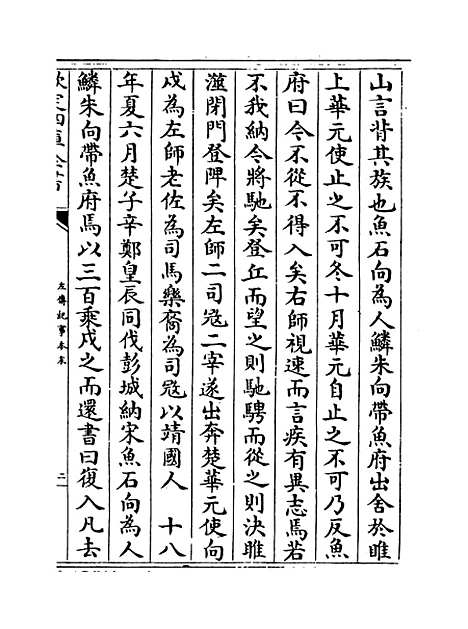 山言背其族也魚石向為人鱗朱向帶魚府出舍於睢
上華元使止之不可冬十月華元自止之不可乃反魚
府曰今不從不得入矣右師視速而言疾有異志焉若
不我納今將馳矣登丘而望之則馳騁而從之則決睢
澨閉門登陴矣左師二司寇二宰遂出奔楚華元使向
戌為左師老佐為司馬樂裔為司寇以靖國人　十八
年夏六月楚子辛鄭皇辰同伐彭城納宋魚石向為人
鱗朱向帶魚府焉以三百乘戍之而還書曰復入凡去
欽定四庫全書
左傳記事本末
二